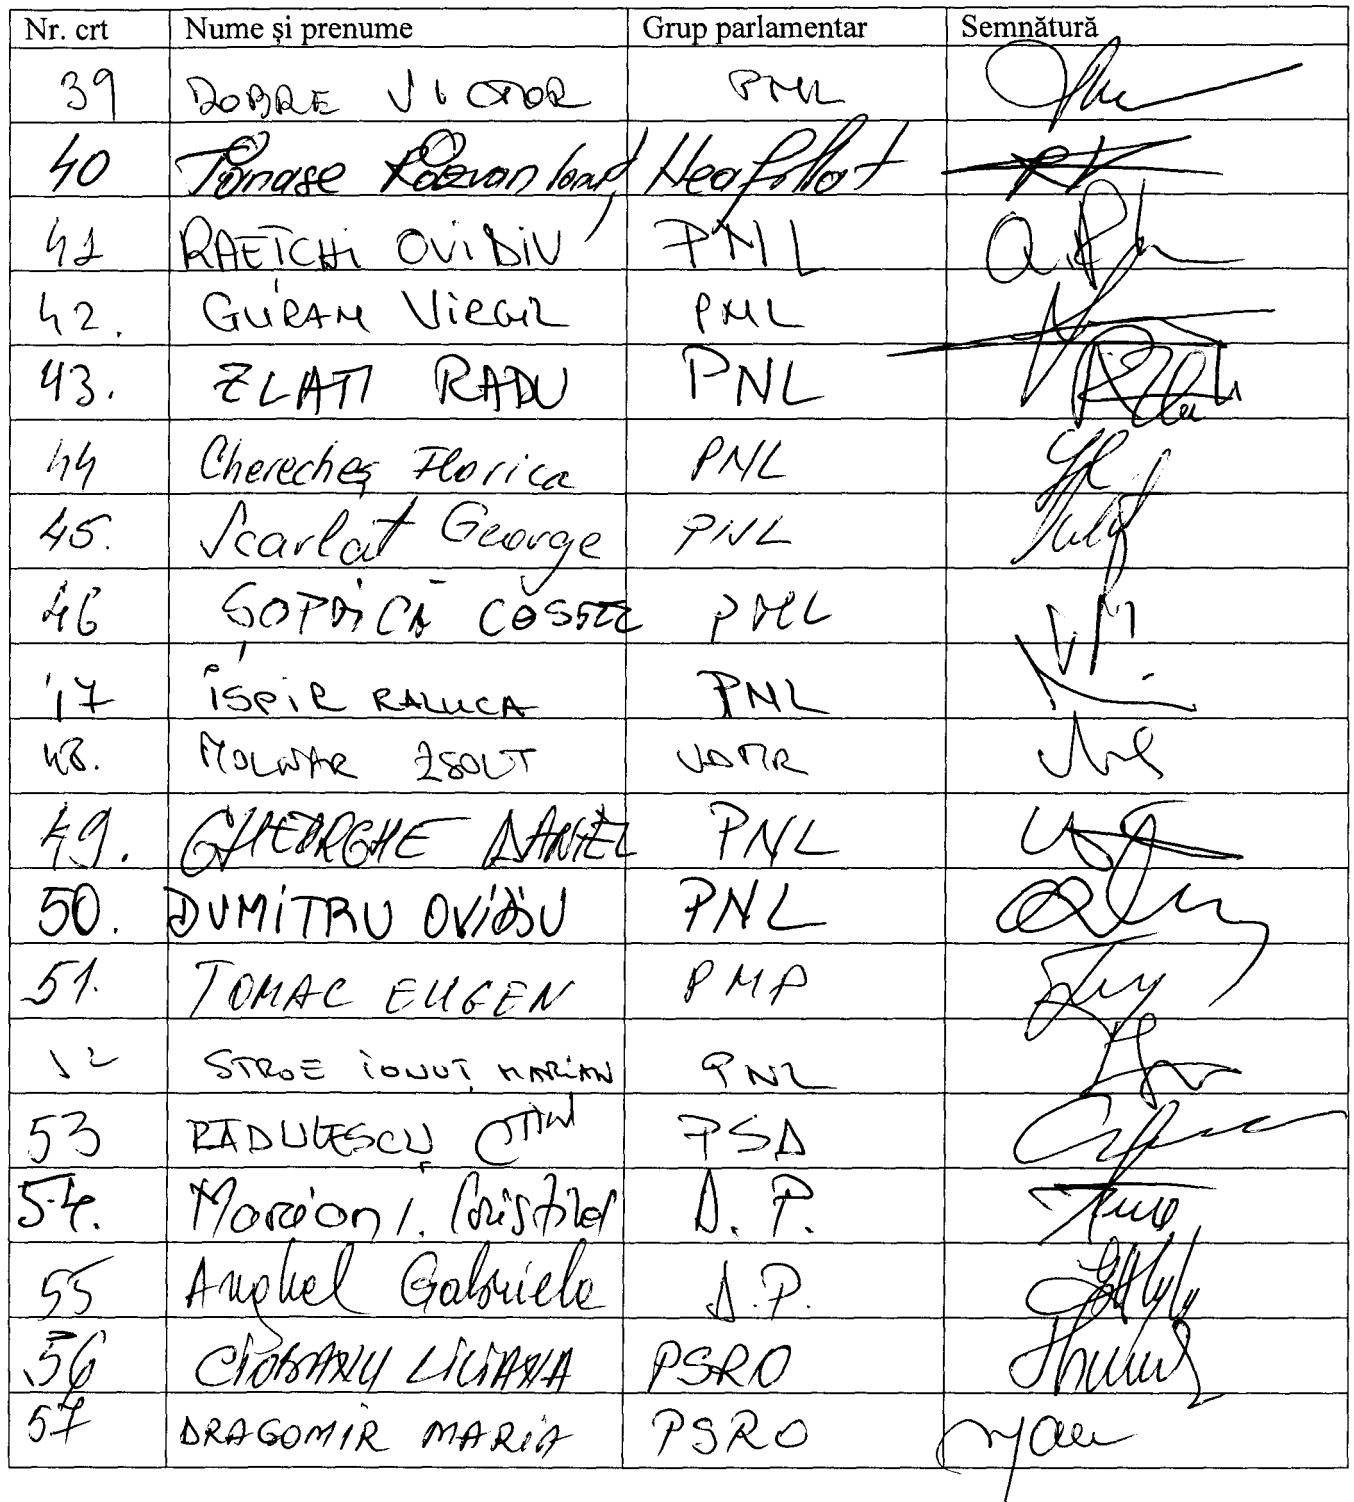 Nr. crt Nume și prenume Grup parlamentar Semnătură
39 DOBRE VICTOR PNL
40 Tănase Răzvan Ioan Neafiliat
41 RAEȚCHI OVIDIU PNL
42. GURAN VIRGIL PNL
43. ZLATI RADU PNL
44 Cherecheș Florica PNL
45. Scarlat George PNL
46 ȘOPTICĂ COSTEL PNL
47 ISPIR RALUCA PNL
48. MOLNAR ZSOLT UDMR
49. GHEORGHE DANIEL PNL
50. DUMITRU OVIDIU PNL
51. TOMAC EUGEN PMP
52 STROE IONUȚ MARIAN PNL
53 RADULESCU PSD
54. Marian I. Cristinel D. P.
55 Anghel Gabriela D.P.
56 CIOBANU LILIANA PSRO
57 DRAGOMIR MARIA PSRO